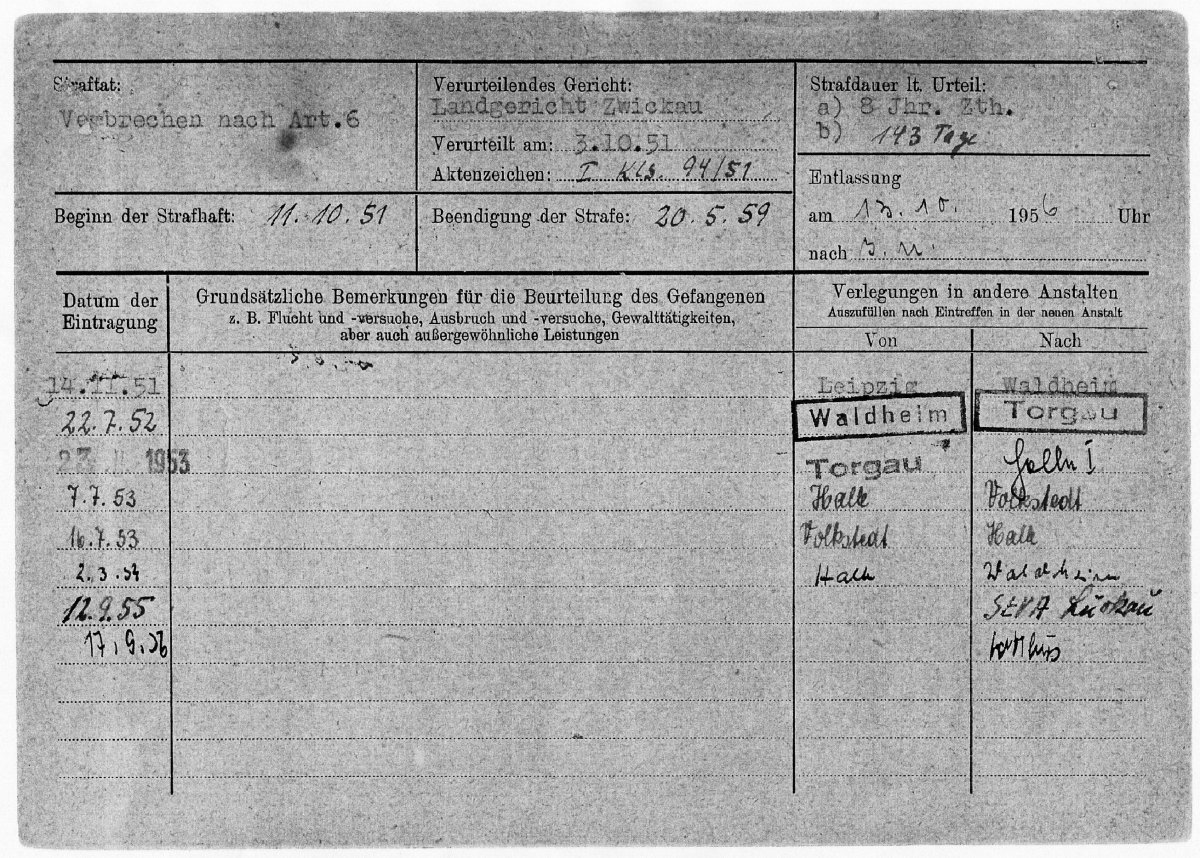 Straftat:
Verbrechen nach Art.6
Verurteilendes Gericht:
Landgericht Zwickau
Verurteilt am: 3.10.51
Aktenzeichen: I Kls. 94/51
Strafdauer lt. Urteil:
a) 8 Jhr. Zth.
b) 143 Tage
Beginn der Strafhaft: 11.10.51
Beendigung der Strafe: 20.5.59
Entlassung
am 13.10. 1956 Uhr
nach
Datum der
Eintragung
Grundsätzliche Bemerkungen für die Beurteilung des Gefangenen
z. B. Flucht und -versuche, Ausbruch und -versuche, Gewalttätigkeiten,
aber auch außergewöhnliche Leistungen
Verlegungen in andere Anstalten
Auszufüllen nach Eintreffen in der neuen Anstalt
Von Nach
14.11.51 Leipzig Waldheim
22.7.52 Waldheim Torgau
1953 Torgau Halle I
7.7.53 Halle Volkstedt
16.7.53 Volkstedt Halle
2.3.54 Halle Waldheim
12.9.55 StVA Luckau
17.9.56 Cottbus